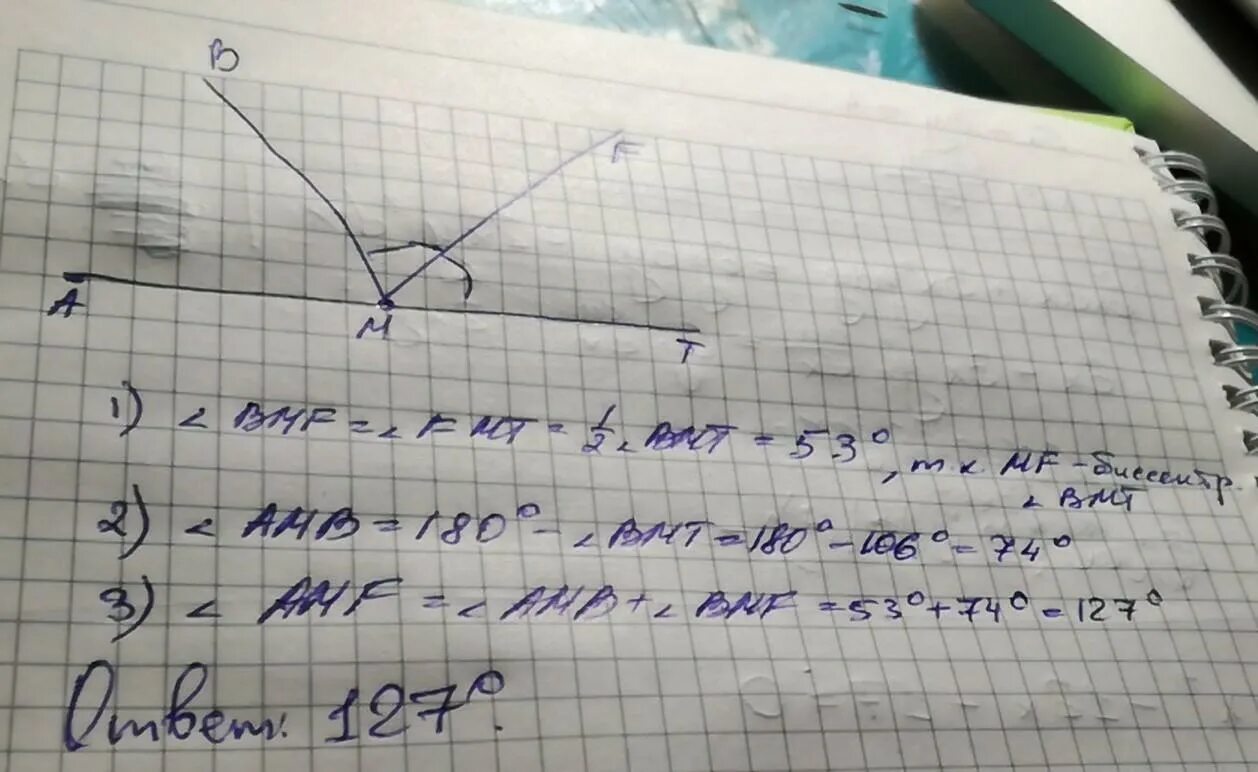 B
F
A
M
T
1) ∠ BMF = ∠ FMT = 1/2 ∠ BMT = 53°, т.к. MF - биссектр.
∠ BMT
2) ∠ AMB = 180° - ∠ BMT = 180° - 106° = 74°
3) ∠ AMF = ∠ AMB + ∠ BMF = 53° + 74° = 127°
Ответ: 127°.